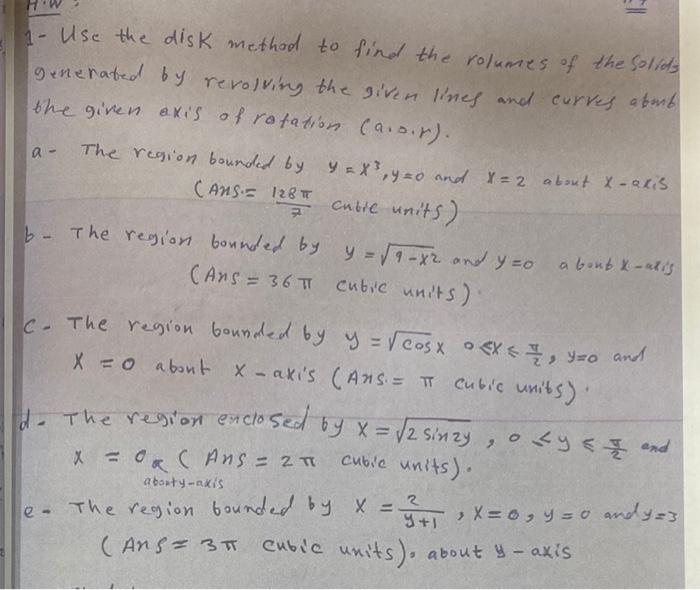 H.W:
1- Use the disk method to find the volumes of the Solids
generated by revolving the given lines and curves about
the given axis of rotation (a.o.r).
a- The region bounded by y=x³, y=0 and x=2 about x-axis
(Ans.= 128π/7 cubic units)
b- The region bounded by y=√9-x² and y=0 about x-axis
(Ans = 36π cubic units).
c- The region bounded by y=√cosx 0≤x≤π/2, y=0 and
x=0 about x-axis (Ans.= π cubic units).
d- The region enclosed by x=√2sin2y, 0≤y≤π/2 and
x=0 (Ans = 2π cubic units).
about y-axis
e- The region bounded by x=2/y+1, x=0, y=0 and y=3
(Ans = 3π cubic units). about y-axis